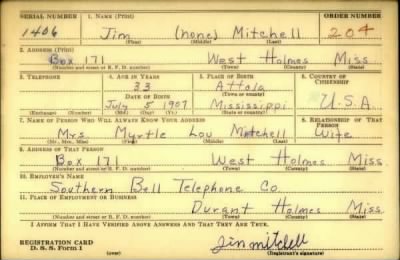 SERIAL NUMBER 1. NAME (Print) ORDER NUMBER
1406 Jim (none) Mitchell 204
(First) (Middle) (Last)
2. ADDRESS (Print)
Box 171 West Holmes Miss
(Number and street or R. F. D. number) (Town) (County) (State)
3. TELEPHONE 4. AGE IN YEARS 5. PLACE OF BIRTH 6. COUNTRY OF CITIZENSHIP
33 Attala
DATE OF BIRTH (Town or county)
July 5 1907 Mississippi U.S.A
(Exchange) (Number) (Mo.) (Day) (Yr.) (State or country)
7. NAME OF PERSON WHO WILL ALWAYS KNOW YOUR ADDRESS 8. RELATIONSHIP OF THAT PERSON
Mrs. Myrtle Lou Mitchell Wife
(Mr., Mrs., Miss) (First) (Middle) (Last)
9. ADDRESS OF THAT PERSON
Box 171 West Holmes Miss
(Number and street or R. F. D. number) (Town) (County) (State)
10. EMPLOYER'S NAME
Southern Bell Telephone Co.
11. PLACE OF EMPLOYMENT OR BUSINESS
Durant Holmes Miss
(Number and street or R. F. D. number) (Town) (County) (State)
I AFFIRM THAT I HAVE VERIFIED ABOVE ANSWERS AND THAT THEY ARE TRUE.
REGISTRATION CARD
D. S. S. Form 1 (over) Jim mitchell
(Registrant's signature)